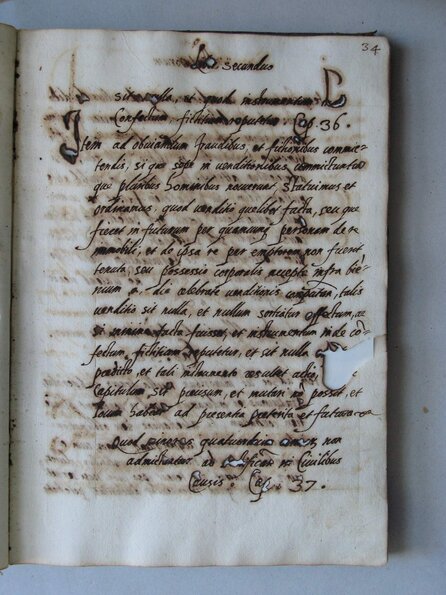 34
secundus
sit nulla, et quod instrumentum
Confectum fititium reputetur. Cap. 36.
Item ad obviandum fraudibus, et fictionibus commit-
tendis, si que sepe in venditionibus committuntur
que pluribus hominibus noverunt, statuimus et
ordinamus, quod venditio quelibet facta, seu que
fieret in futurum per quamcunq personam de re
immobili, et de ipsa re per emptorem non fuerit
tenuta, seu possessio corporalis recepta infra bie-
nium die celebrate venditionis talis
venditio sit nulla, et nullum sortiatur effectum, ac
si minime facta fuisset, et instrumentum inde co-
fectum, fititium reputetur, et sit nulla
perditio, et tali instrumento
Capitulum sit precisum, et mutari no possit, et
locum habeat ad presentia preterita et futura
Quod minores quatuordecim annis non
admittantur ad in Civilibus
Causis. Cap. 37.